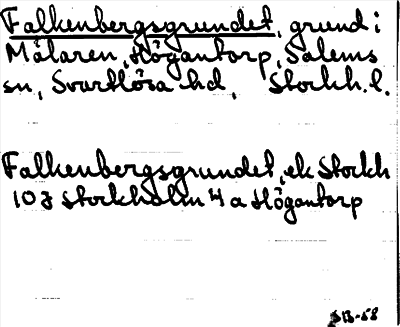 Falkenbergsgrundet, grund i
Mälaren, Högantorp, Salems
sn, Svartlösa hd, Stockh. l.
Falkenbergsgrundet, ek Stockh
10J Stockholm 4 a Högantorp
SB-58